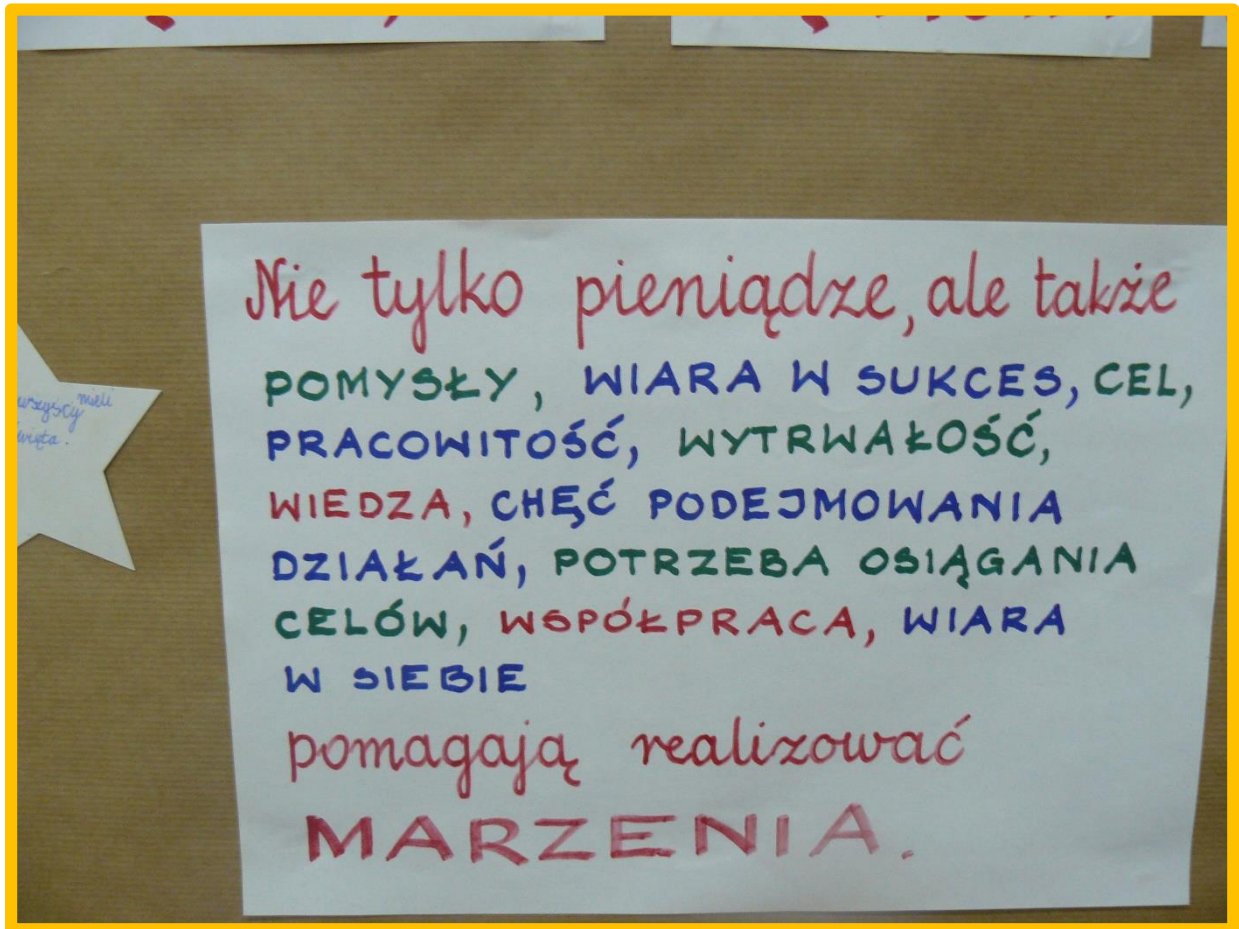 Nie tylko pieniądze, ale także
POMYSŁY, WIARA W SUKCES, CEL,
PRACOWITOŚĆ, WYTRWAŁOŚĆ,
WIEDZA, CHĘĆ PODEJMOWANIA
DZIAŁAŃ, POTRZEBA OSIĄGANIA
CELÓW, WSPÓŁPRACA, WIARA
W SIEBIE
pomagają realizować
MARZENIA.
wszyscy mieli
święta.